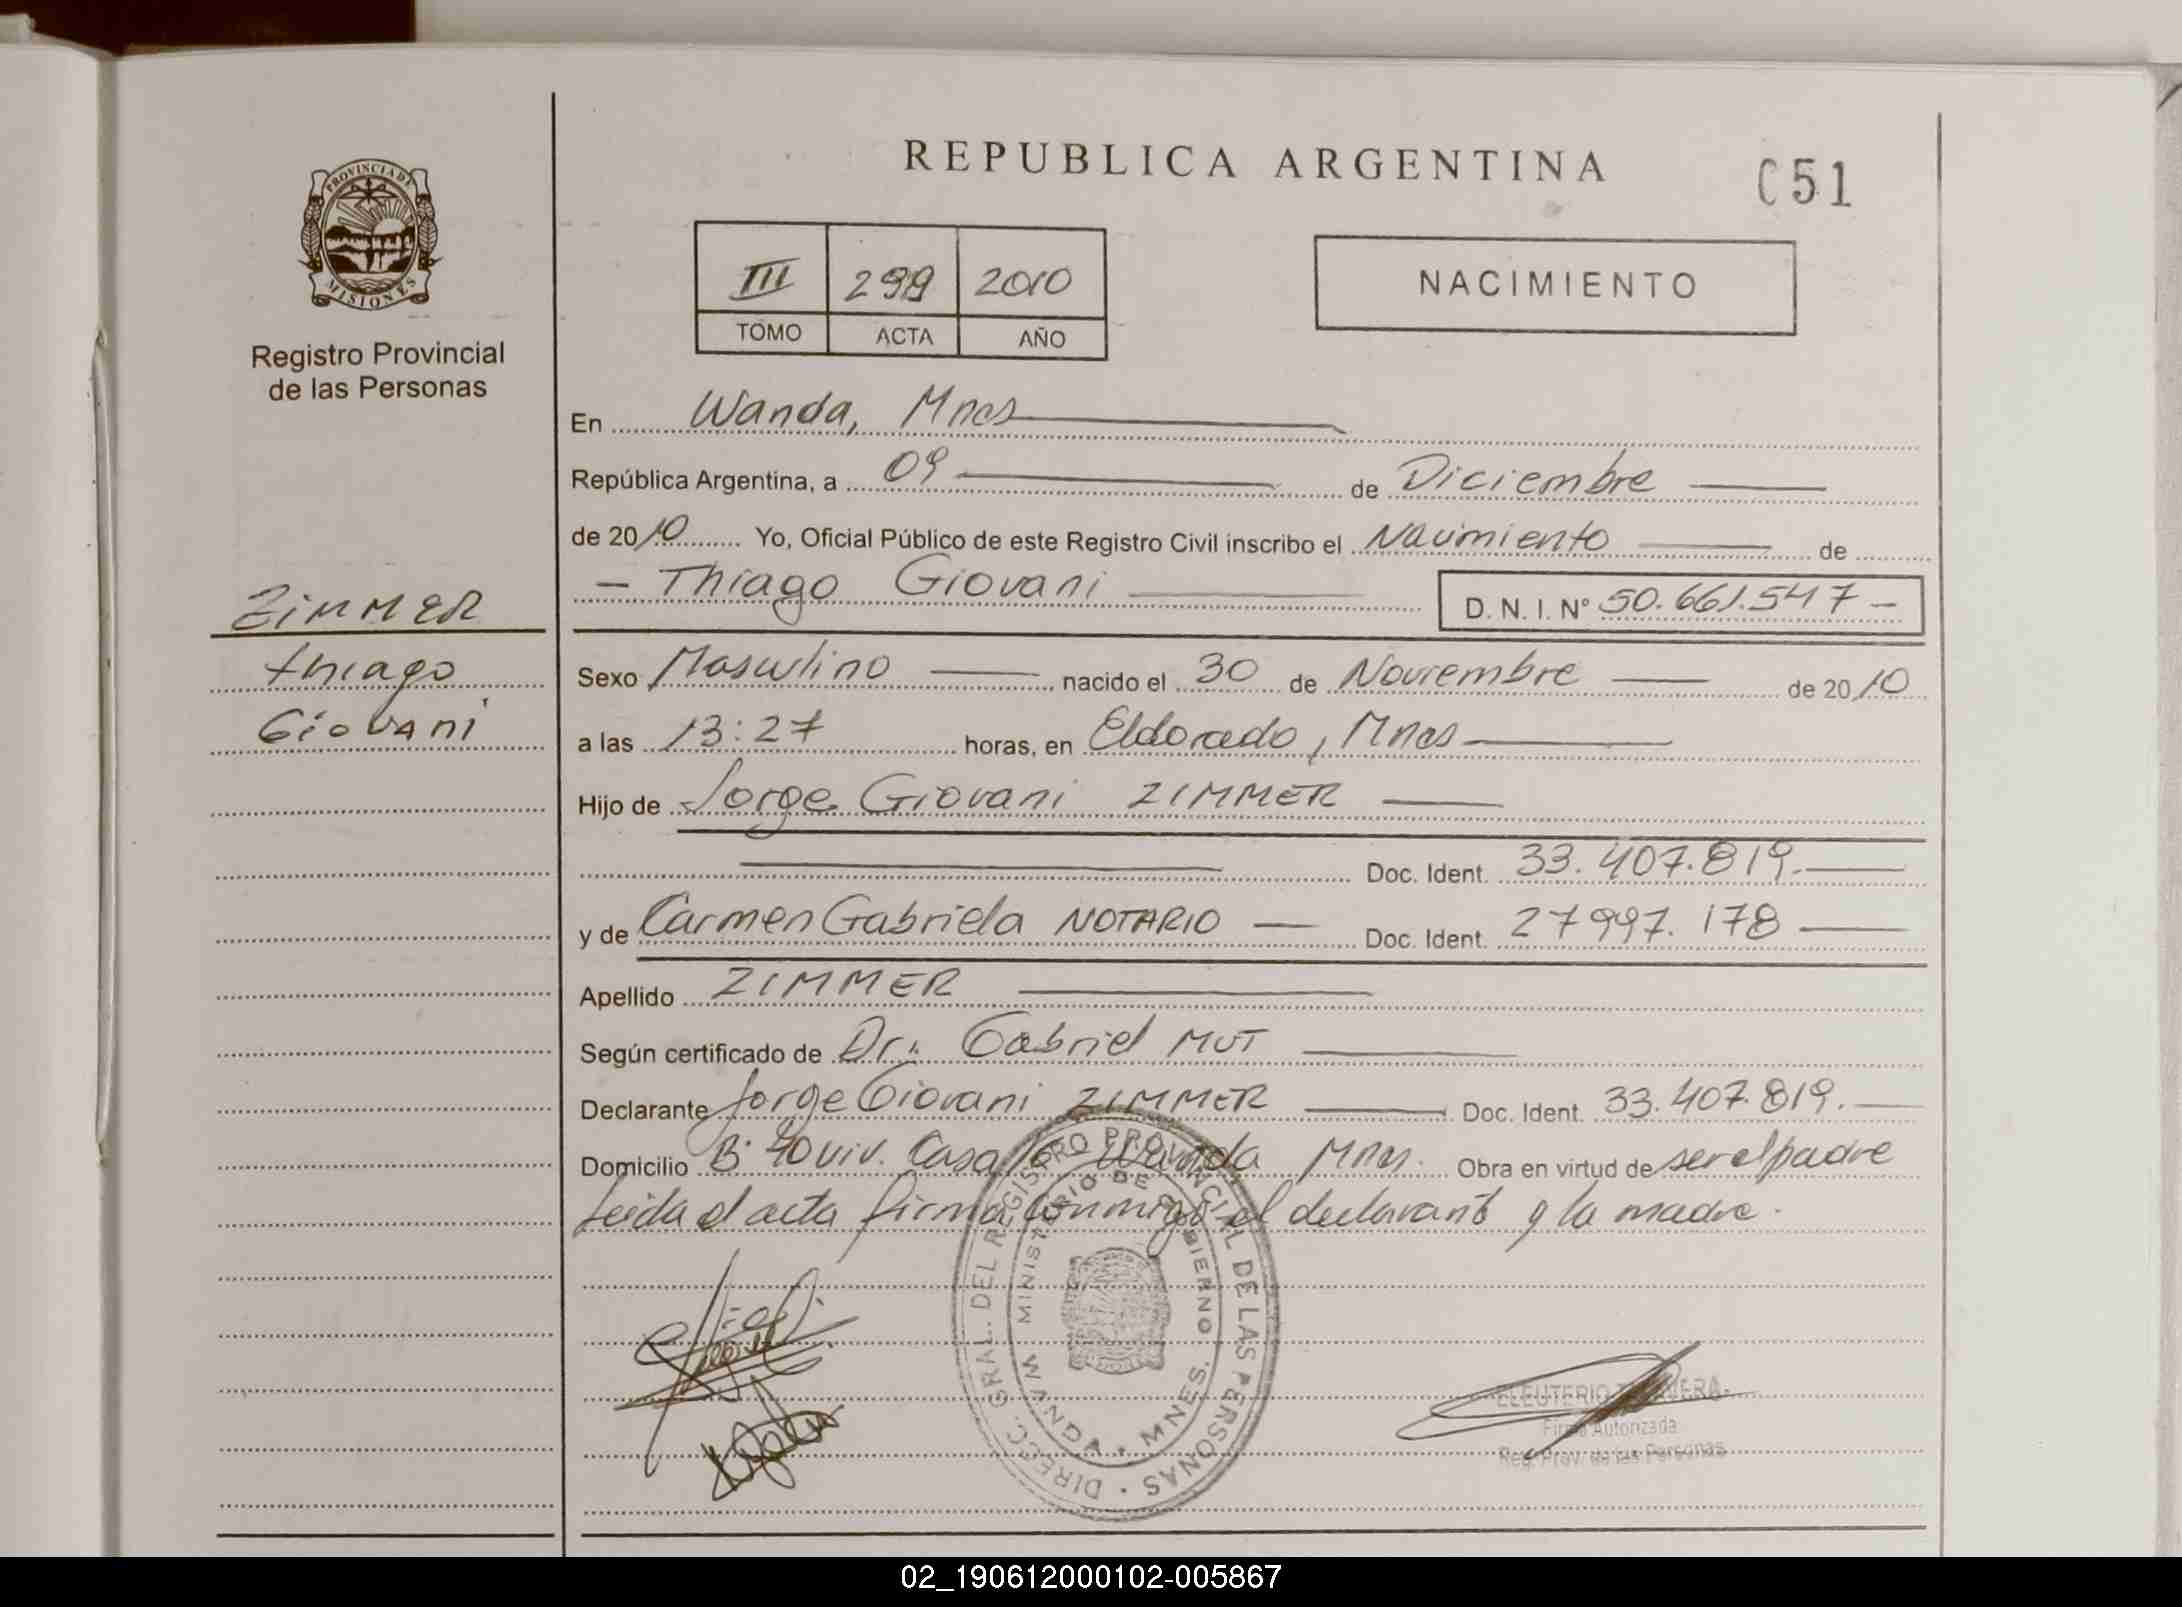 REPUBLICA ARGENTINA
C51
PROVINCIA DE
MISIONES
Registro Provincial
de las Personas
III 299 2010
TOMO ACTA AÑO
NACIMIENTO
En Wanda, Mnes
República Argentina, a 09 de Diciembre
de 2010 Yo, Oficial Público de este Registro Civil inscribo el Nacimiento de
- Thiago Giovani
D. N. I. Nº 50.661.547 -
ZIMMER
Thiago
Giovani
Sexo Masculino nacido el 30 de Noviembre de 2010
a las 13:27 horas, en Eldorado, Mnes
Hijo de Jorge Giovani ZIMMER
Doc. Ident. 33.407.819.
y de Carmen Gabriela NOTARIO Doc. Ident. 27997.178
Apellido ZIMMER
Según certificado de Dr. Gabriel MUT
Declarante Jorge Giovani ZIMMER Doc. Ident. 33.407.819.
Domicilio B° 40 viv. Casa Wanda Mnes. Obra en virtud de ser el padre
Leida el acta firma conmigo el declarante y la madre.
DIRECC. GRAL. DEL REGISTRO PROVINCIAL DE LAS PERSONAS
MINISTERIO DE GOBIERNO
WANDA • MNES.
ELEUTERIO
Firma Autorizada
Reg. Prov. de las Personas
02_190612000102-005867